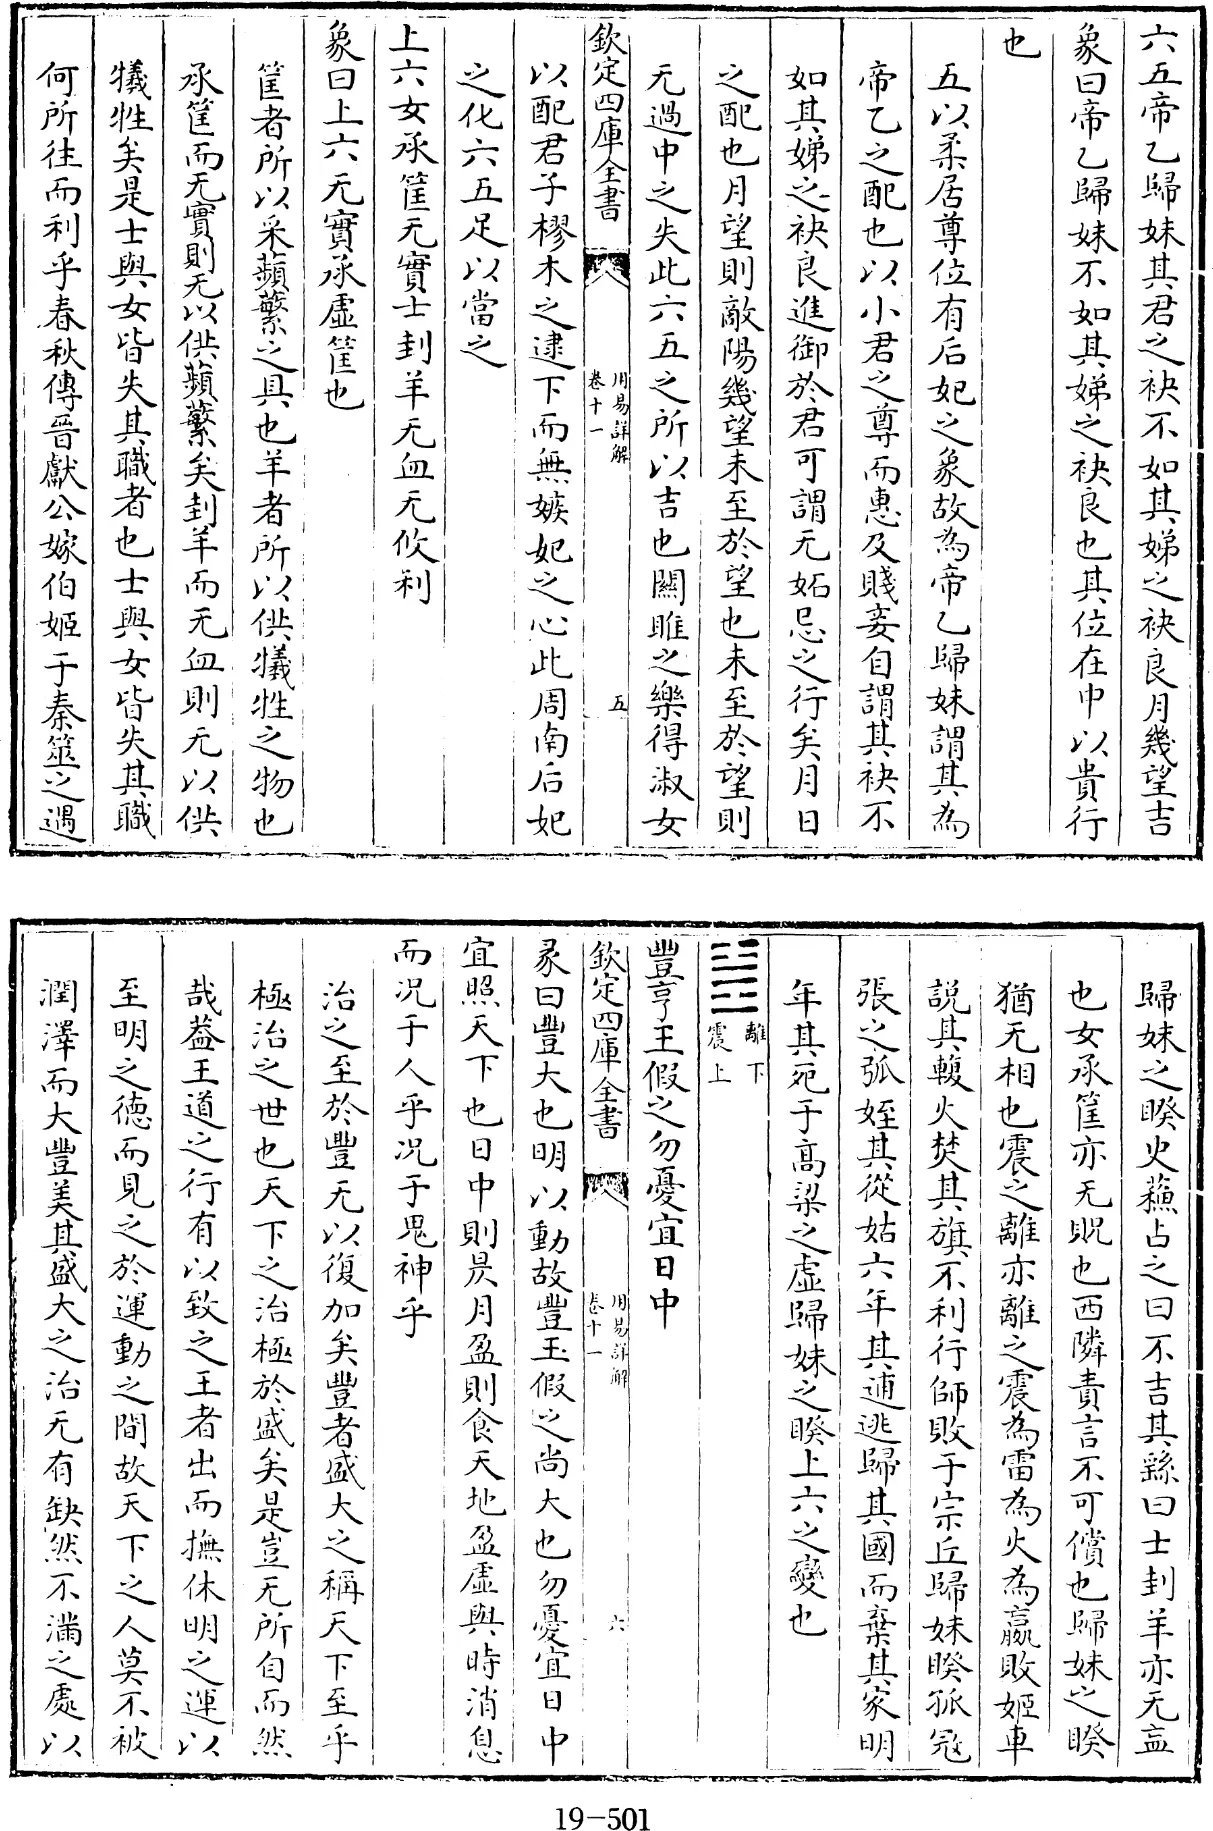 六五帝乙歸妹其君之袂不如其娣之袂良月幾望吉
象曰帝乙歸妹不如其娣之袂良也其位在中以貴行
也
五以柔居尊位有后妃之象故為帝乙歸妹謂其為
帝乙之配也以小君之尊而惠及賤妾自謂其袂不
如其娣之袂良進御於君可謂无妬忌之行矣月日
之配也月望則敵陽幾望未至於望也未至於望則
无過中之失此六五之所以吉也關雎之樂得淑女
欽定四庫全書
周易詳解
卷十一
五
以配君子樛木之逮下而無嫉妃之心此周南后妃
之化六五足以當之
上六女承筐无實士刲羊无血无攸利
象曰上六无實承虛筐也
筐者所以采蘋蘩之具也羊者所以供犧牲之物也
承筐而无實則无以供蘋蘩矣刲羊而无血則无以供
犧牲矣是士與女皆失其職者也士與女皆失其職
何所往而利乎春秋傳晉獻公嫁伯姬于秦筮之遇
歸妹之睽史蘇占之曰不吉其繇曰士刲羊亦无衁
也女承筐亦无貺也西隣責言不可償也歸妹之睽
猶无相也震之離亦離之震為雷為火為嬴敗姬車
說其輹火焚其旗不利行師敗于宗丘歸妹睽孤寇
張之弧姪其從姑六年其逋逃歸其國而棄其家明
年其死于高梁之虛歸妹之睽上六之變也
離下
震上
豐亨王假之勿憂宜日中
欽定四庫全書
周易詳解
卷十一
六
彖曰豐大也明以動故豐王假之尚大也勿憂宜日中
宜照天下也日中則昃月盈則食天地盈虛與時消息
而况于人乎况于鬼神乎
治之至於豐无以復加矣豐者盛大之稱天下至乎
極治之世也天下之治極於盛矣是豈无所自而然
哉葢王道之行有以致之王者出而撫休明之運以
至明之德而見之於運動之間故天下之人莫不被
潤澤而大豐美其盛大之治无有缺然不滿之處以
19-501